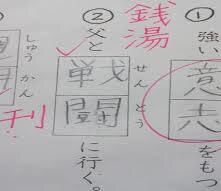 ① 強い
意志
をもつ
② 父と
戦闘
せんとう
に行く。
銭湯
しゅうかん
刊